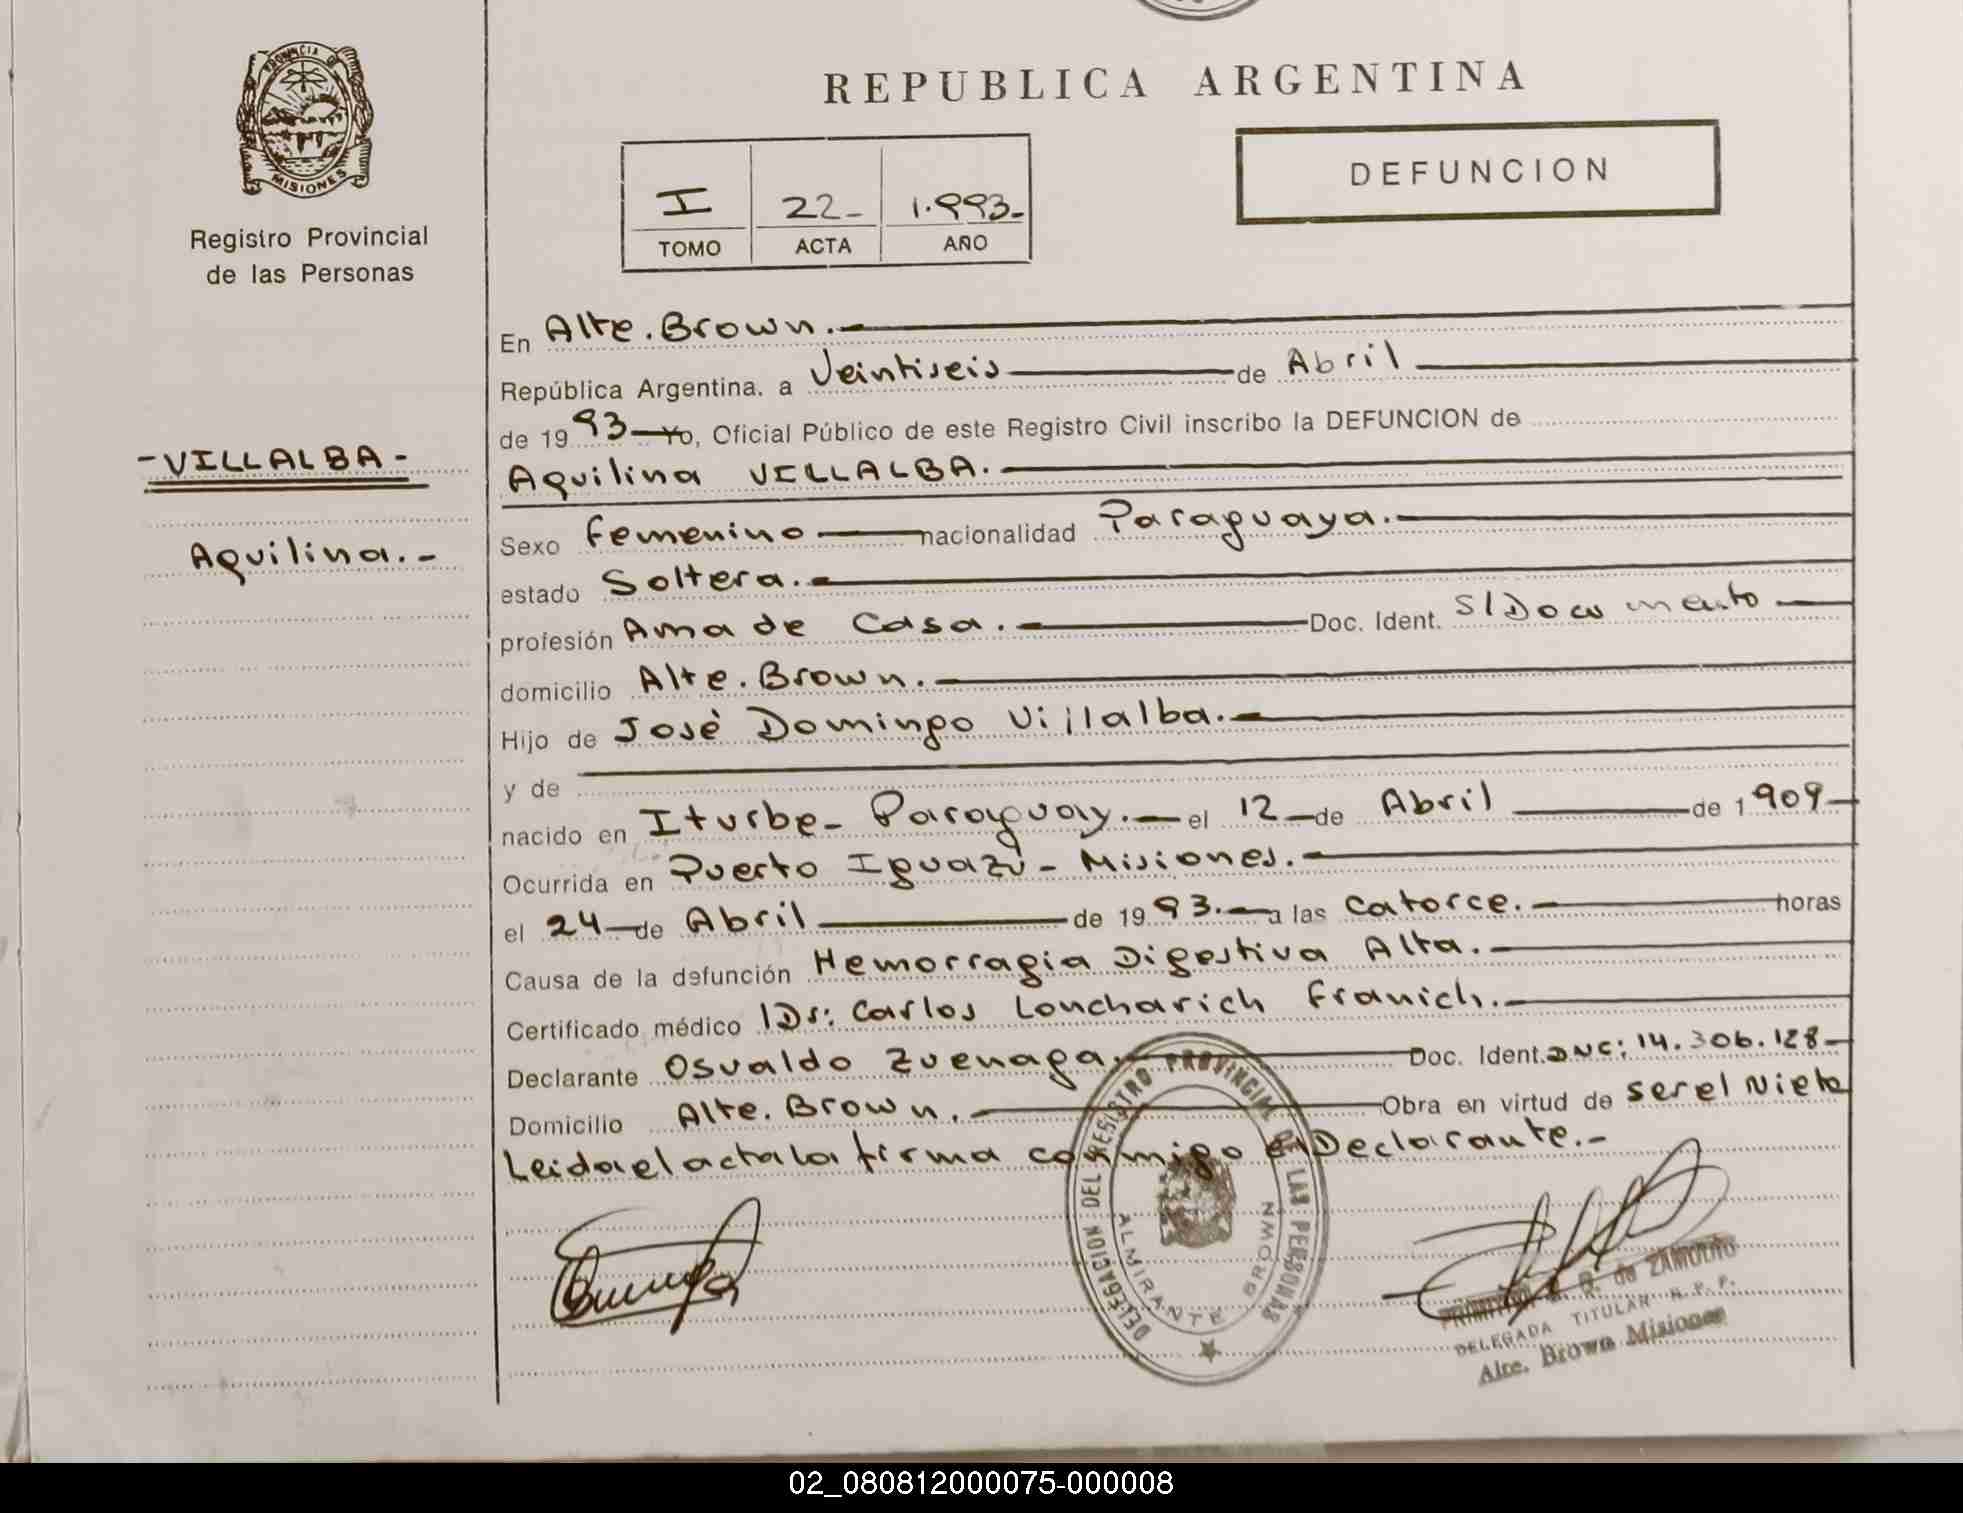 PROVINCIA DE
MISIONES
Registro Provincial
de las Personas
-VILLALBA-
Aquilina.-
REPUBLICA ARGENTINA
I 22- 1.993-
TOMO ACTA AÑO
DEFUNCION
En Alte. Brown.
República Argentina. a Veintiseis de Abril
de 19 93 Yo, Oficial Público de este Registro Civil inscribo la DEFUNCION de
Aquilina VILLALBA.
Sexo Femenino nacionalidad Paraguaya.
estado Soltera.
profesión Ama de Casa. Doc. Ident. S/Documento
domicilio Alte. Brown.
Hijo de José Domingo Villalba.
y de
nacido en Iturbe- Paraguay. el 12 de Abril de 1909
Ocurrida en Puerto Iguazú - Misiones.
el 24 de Abril de 19 93. a las Catorce. horas
Causa de la defunción Hemorragia Digestiva Alta.
Certificado médico Dr: Carlos Loncharich Franich.
Declarante Osvaldo Zuenaga. Doc. Ident. DNC: 14.306.128-
Domicilio Alte. Brown. Obra en virtud de ser el Nieto
Leida el acta la firma conmigo el Declarante.-
DELEGACION DEL REGISTRO PROVINCIAL DE LAS PERSONAS
ALMIRANTE BROWN
de ZAMUDIO
DELEGADA TITULAR R. P. P.
Alte. Brown Misiones
02_080812000075-000008